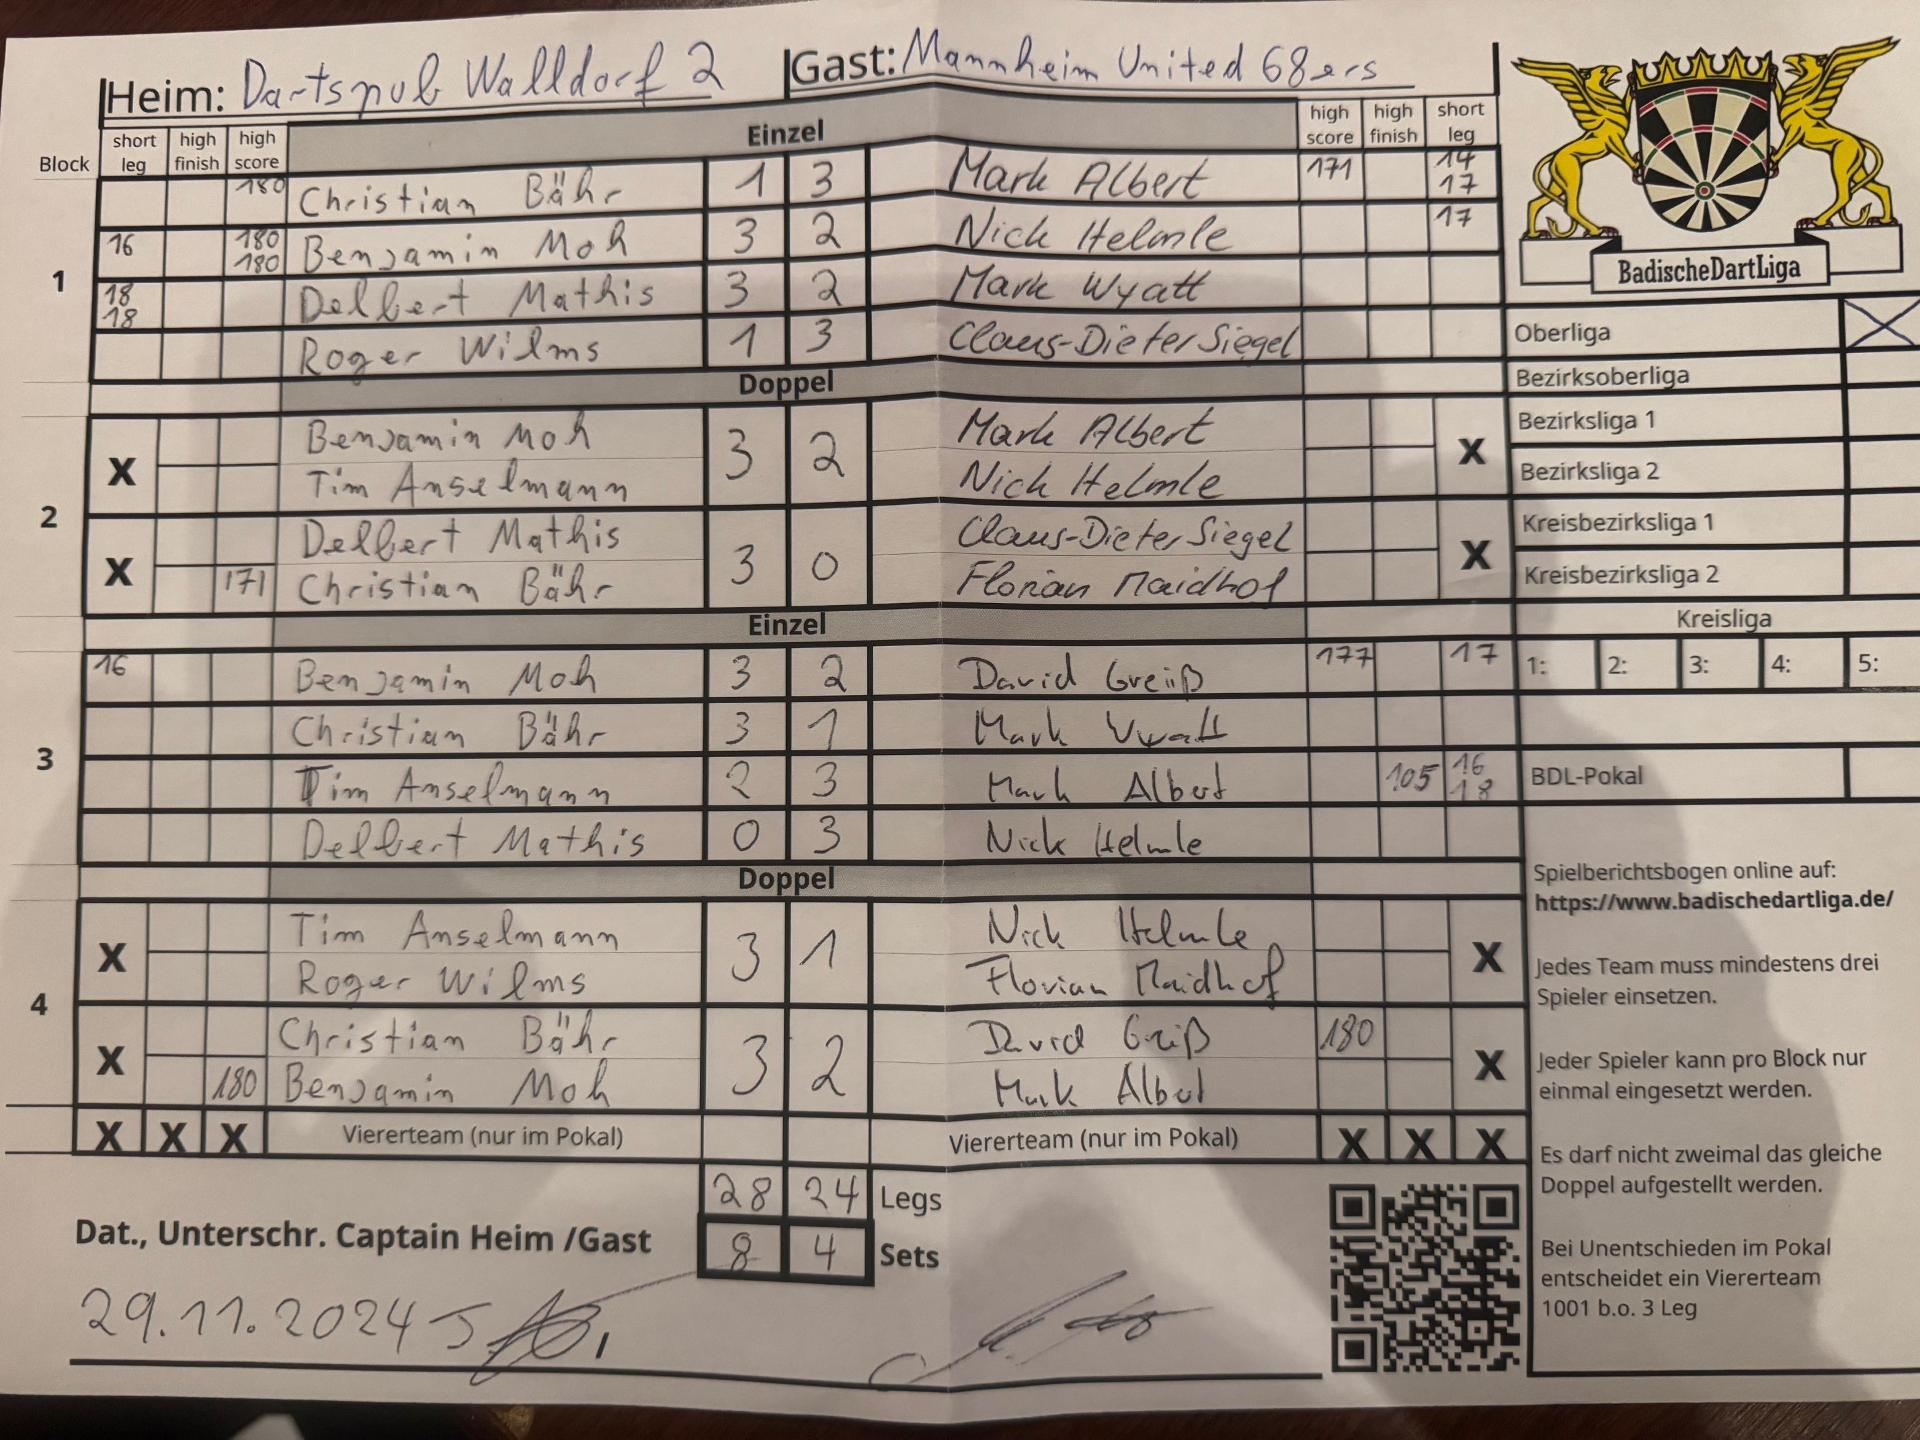 Heim: Dartspub Walldorf 2 Gast: Mannheim United 68ers
Block short leg high finish high score Einzel high score high finish short leg
1
180 Christian Bähr 1 3 Mark Albert 171 14 17
16 180 180 Benjamin Moh 3 2 Nick Helmle 17
18 18 Delbert Mathis 3 2 Mark Wyatt
Roger Wilms 1 3 Claus-Dieter Siegel
Doppel
2
X Benjamin Moh 3 2 Mark Albert X
Tim Anselmann Nick Helmle
X Delbert Mathis 3 0 Claus-Dieter Siegel X
171 Christian Bähr Florian Maidhof
Einzel
3
16 Benjamin Moh 3 2 David Greiß 177 17
Christian Bähr 3 1 Mark Wyatt
Tim Anselmann 2 3 Mark Albert 105 16 18
Delbert Mathis 0 3 Nick Helmle
Doppel
4
X Tim Anselmann 3 1 Nick Helmle X
Roger Wilms Florian Maidhof
X Christian Bähr 3 2 David Greiß 180 X
180 Benjamin Moh Mark Albert
X X X Viererteam (nur im Pokal) Viererteam (nur im Pokal) X X X
28 24 Legs
8 4 Sets
Dat., Unterschr. Captain Heim /Gast
29.11.2024
BadischeDartLiga
Oberliga X
Bezirksoberliga
Bezirksliga 1
Bezirksliga 2
Kreisbezirksliga 1
Kreisbezirksliga 2
Kreisliga
1: 2: 3: 4: 5:
BDL-Pokal
Spielberichtsbogen online auf:
https://www.badischedartliga.de/
Jedes Team muss mindestens drei
Spieler einsetzen.
Jeder Spieler kann pro Block nur
einmal eingesetzt werden.
Es darf nicht zweimal das gleiche
Doppel aufgestellt werden.
Bei Unentschieden im Pokal
entscheidet ein Viererteam
1001 b.o. 3 Leg